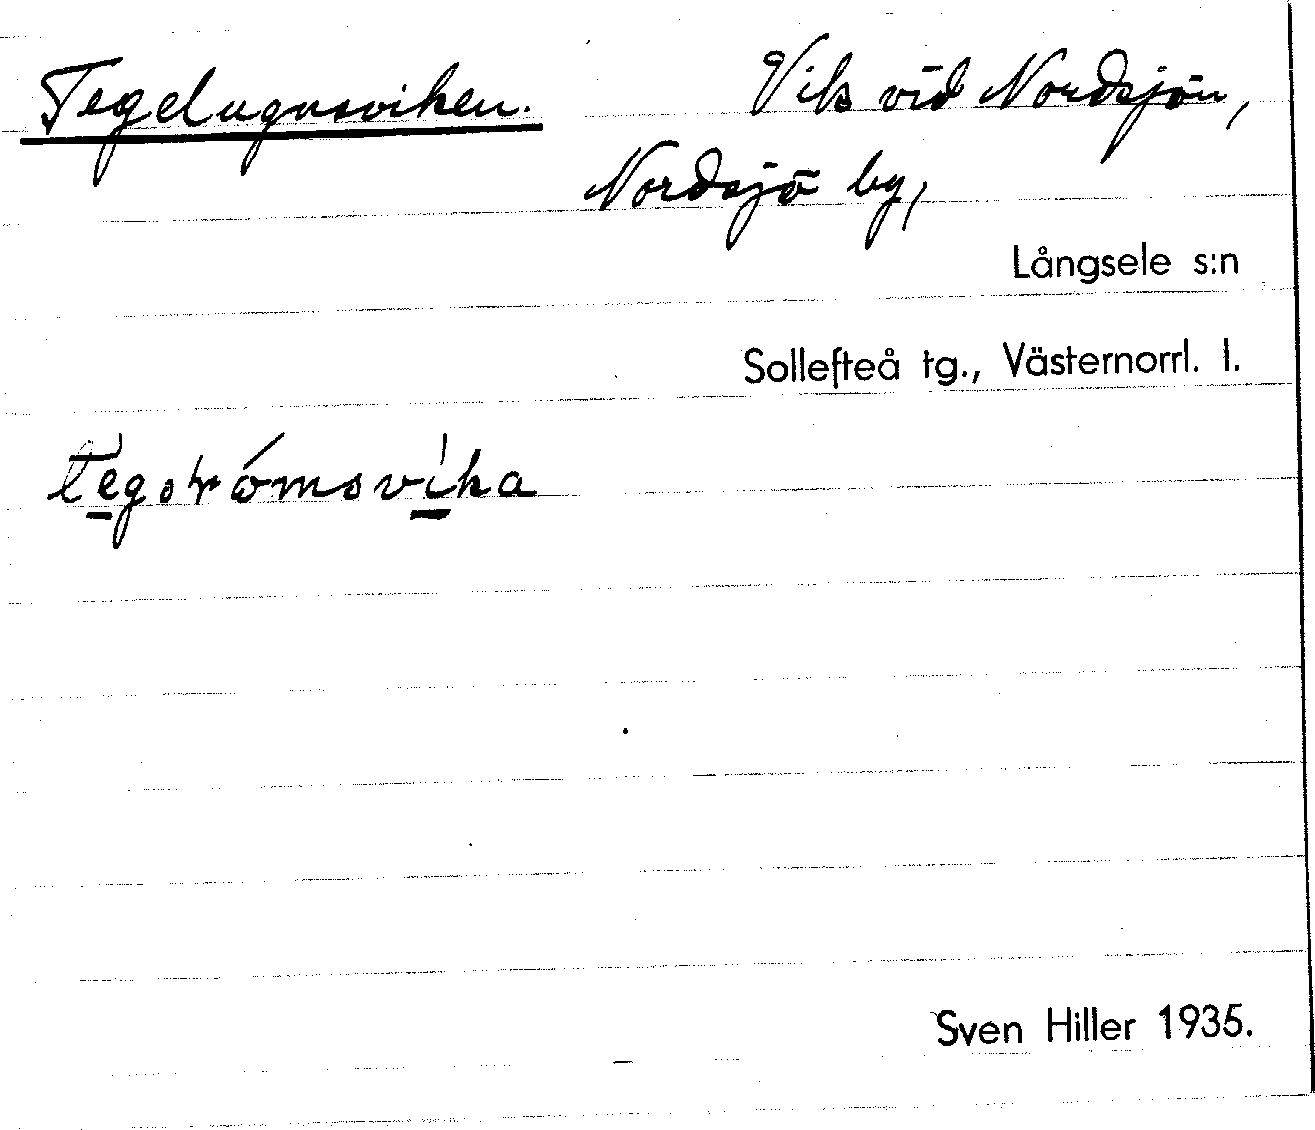 Tegelugnsviken. Vik vid Nordsjön,
Nordsjö by,
Långsele s:n
Sollefteå tg., Västernorrl. l.
Sven Hiller 1935.